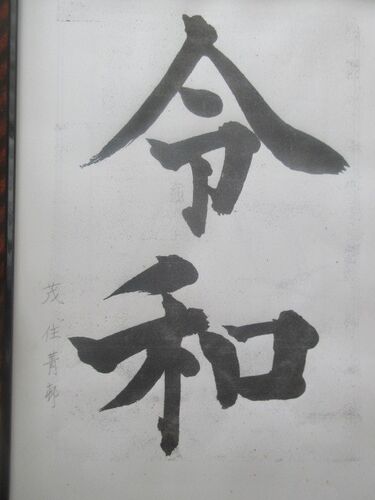 令和
茂住菁邨